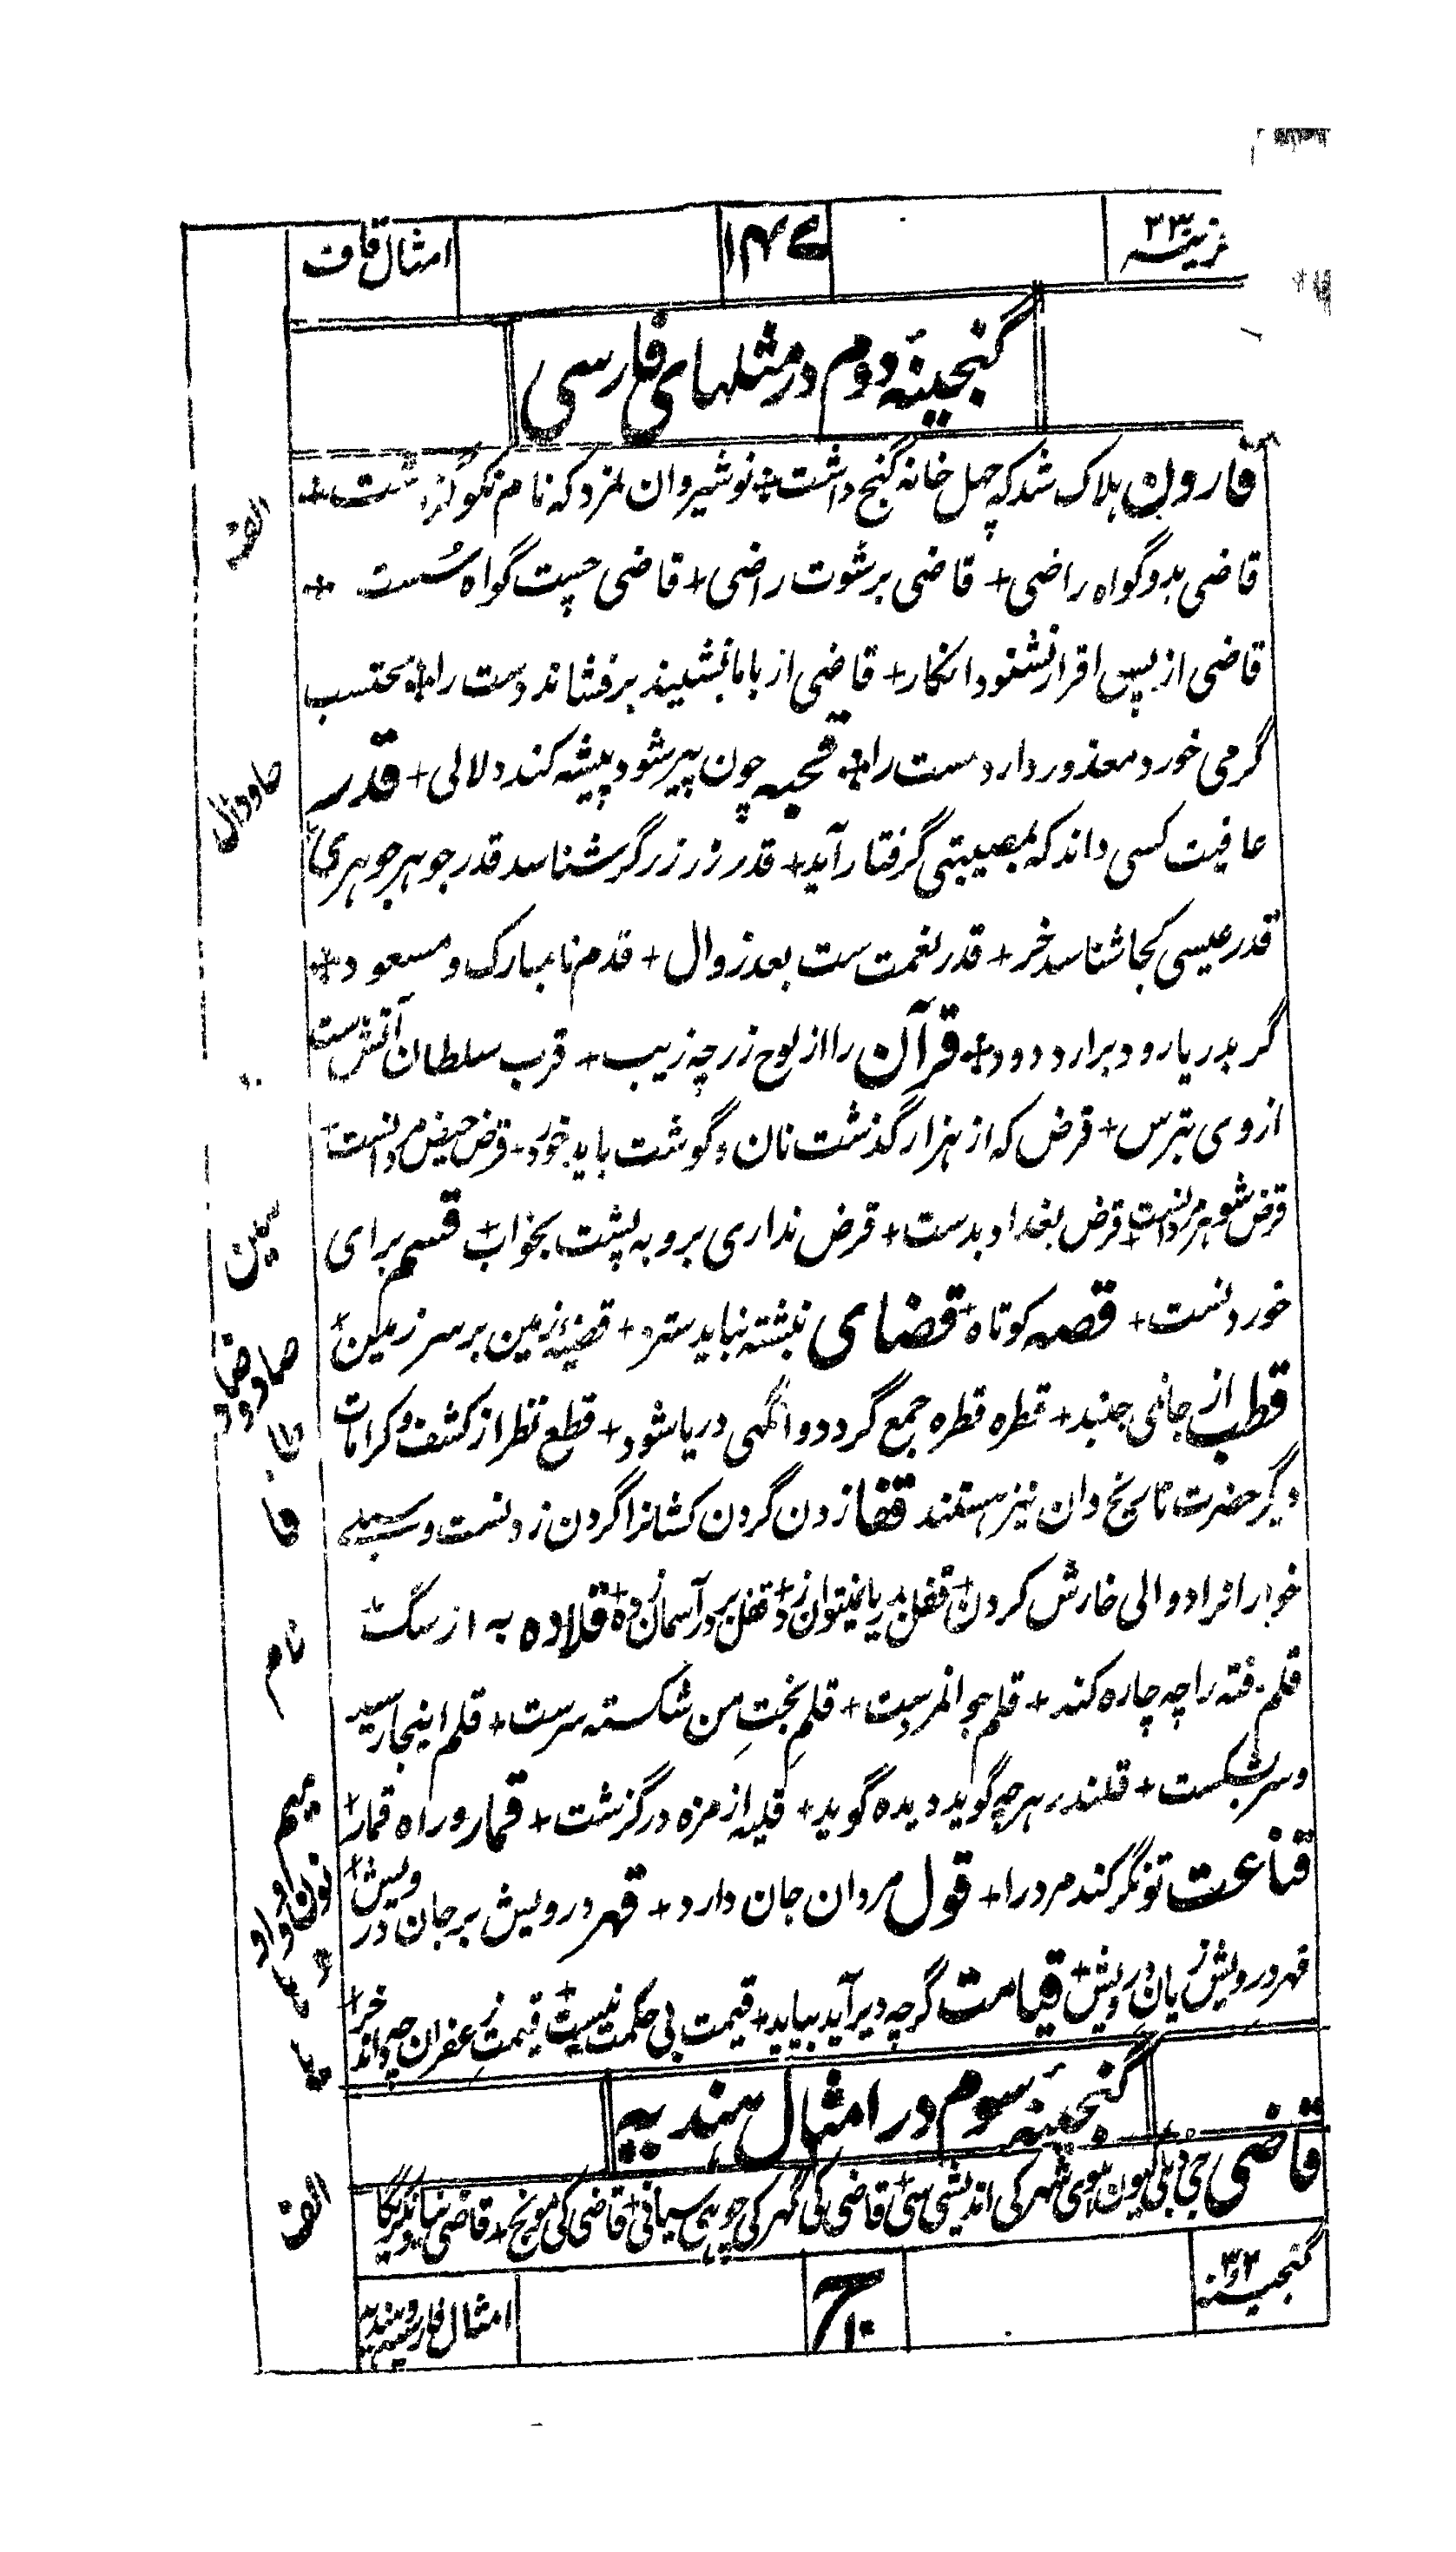 خزینہ ۳۳
۱۴۶
امثال قاف
گنجینۂ دوم در مثلہای فارسی
قارون ہلاک شد کہ چہل خانہ گنج داشت + نوشیروان نمرد کہ نام نکو گذاشت +
الف
قاضی بدو گواہ راضی + قاضی برشوت راضی + قاضی چست گواہ سُست +
قاضی از پس اقرار نشنود انکار + قاضی ار باما نشیند برفشاند دست را + محتسب
گر می خورد معذور دارد مست را + قحبہ چون پیر شود پیشہ کند دلالی + قدر
حا و دال
عافیت کسی داند کہ بمصیبتی گرفتار آید + قدر زر زرگر شناسد قدر جوہر جوہری +
قدر عیسی کجا شناسد خر + قدر نعمت ست بعد زوال + قدم نامبارک و مسعود +
گر بدریا رود برارد دود + قرآن را از لوح زر چہ زیب + قرب سلطان آتش ست
از وی بترس + قرض کہ از ہزار گذشت نان و گوشت باید خورد + قرض حیض مردانست +
قرض شوہر مردانست + قرض بغداد بدست + قرض نداری برو بہ پشت بخواب + قسم برای
سین
خوردنست + قصہ کوتاہ + قضای نبشتہ نباید سترد + قضیۂ زمین بر سر زمین +
صاد و ضاد
قطب از جا نمی جنبد + قطرہ قطرہ جمع گردد وانگہی دریا شود + قطع نظر از کشف و کرامات
طا
دیگر حضرت تاریخ دان نیز ہستند قفا زدن گردن کشانرا گردن زدنست و سیلی
فا
خواران را دوالی خارش کردن + قفل بدریا نمیتوان زد + قفل بر در آسمان زدہ + قلادہ بہ از سگ +
لام
قلم رفتہ را چہ چارہ کند + قلم جوانمردیست + قلمِ بختِ من شکستہ سرست + قلم اینجا رسید
و سر بشکست + قلندر ہرچہ گوید دیدہ گوید + قلیہ از مزہ درگزشت + قمار و راہ قمار +
میم
قناعت تونگر کند مرد را + قول مردان جان دارد + قہر درویش بر جان درویش +
نون و واو
قہر درویش زیان درویش + قیامت گرچہ دیر آید بیاید + قیمت بی حکمت نیست + قیمت زعفران چہ داند خر +
و ہا
یا
گنجینۂ سوم در امثال ہندیہ
قاضی جی دبلی کیون ہوی شہر کی اندیشی سی + قاضی کی گھر کی چوہی سیانی + قاضی کی مونج +
الف
گنجینہ ۲و۳
امثال فارسیہ و ہندیہ